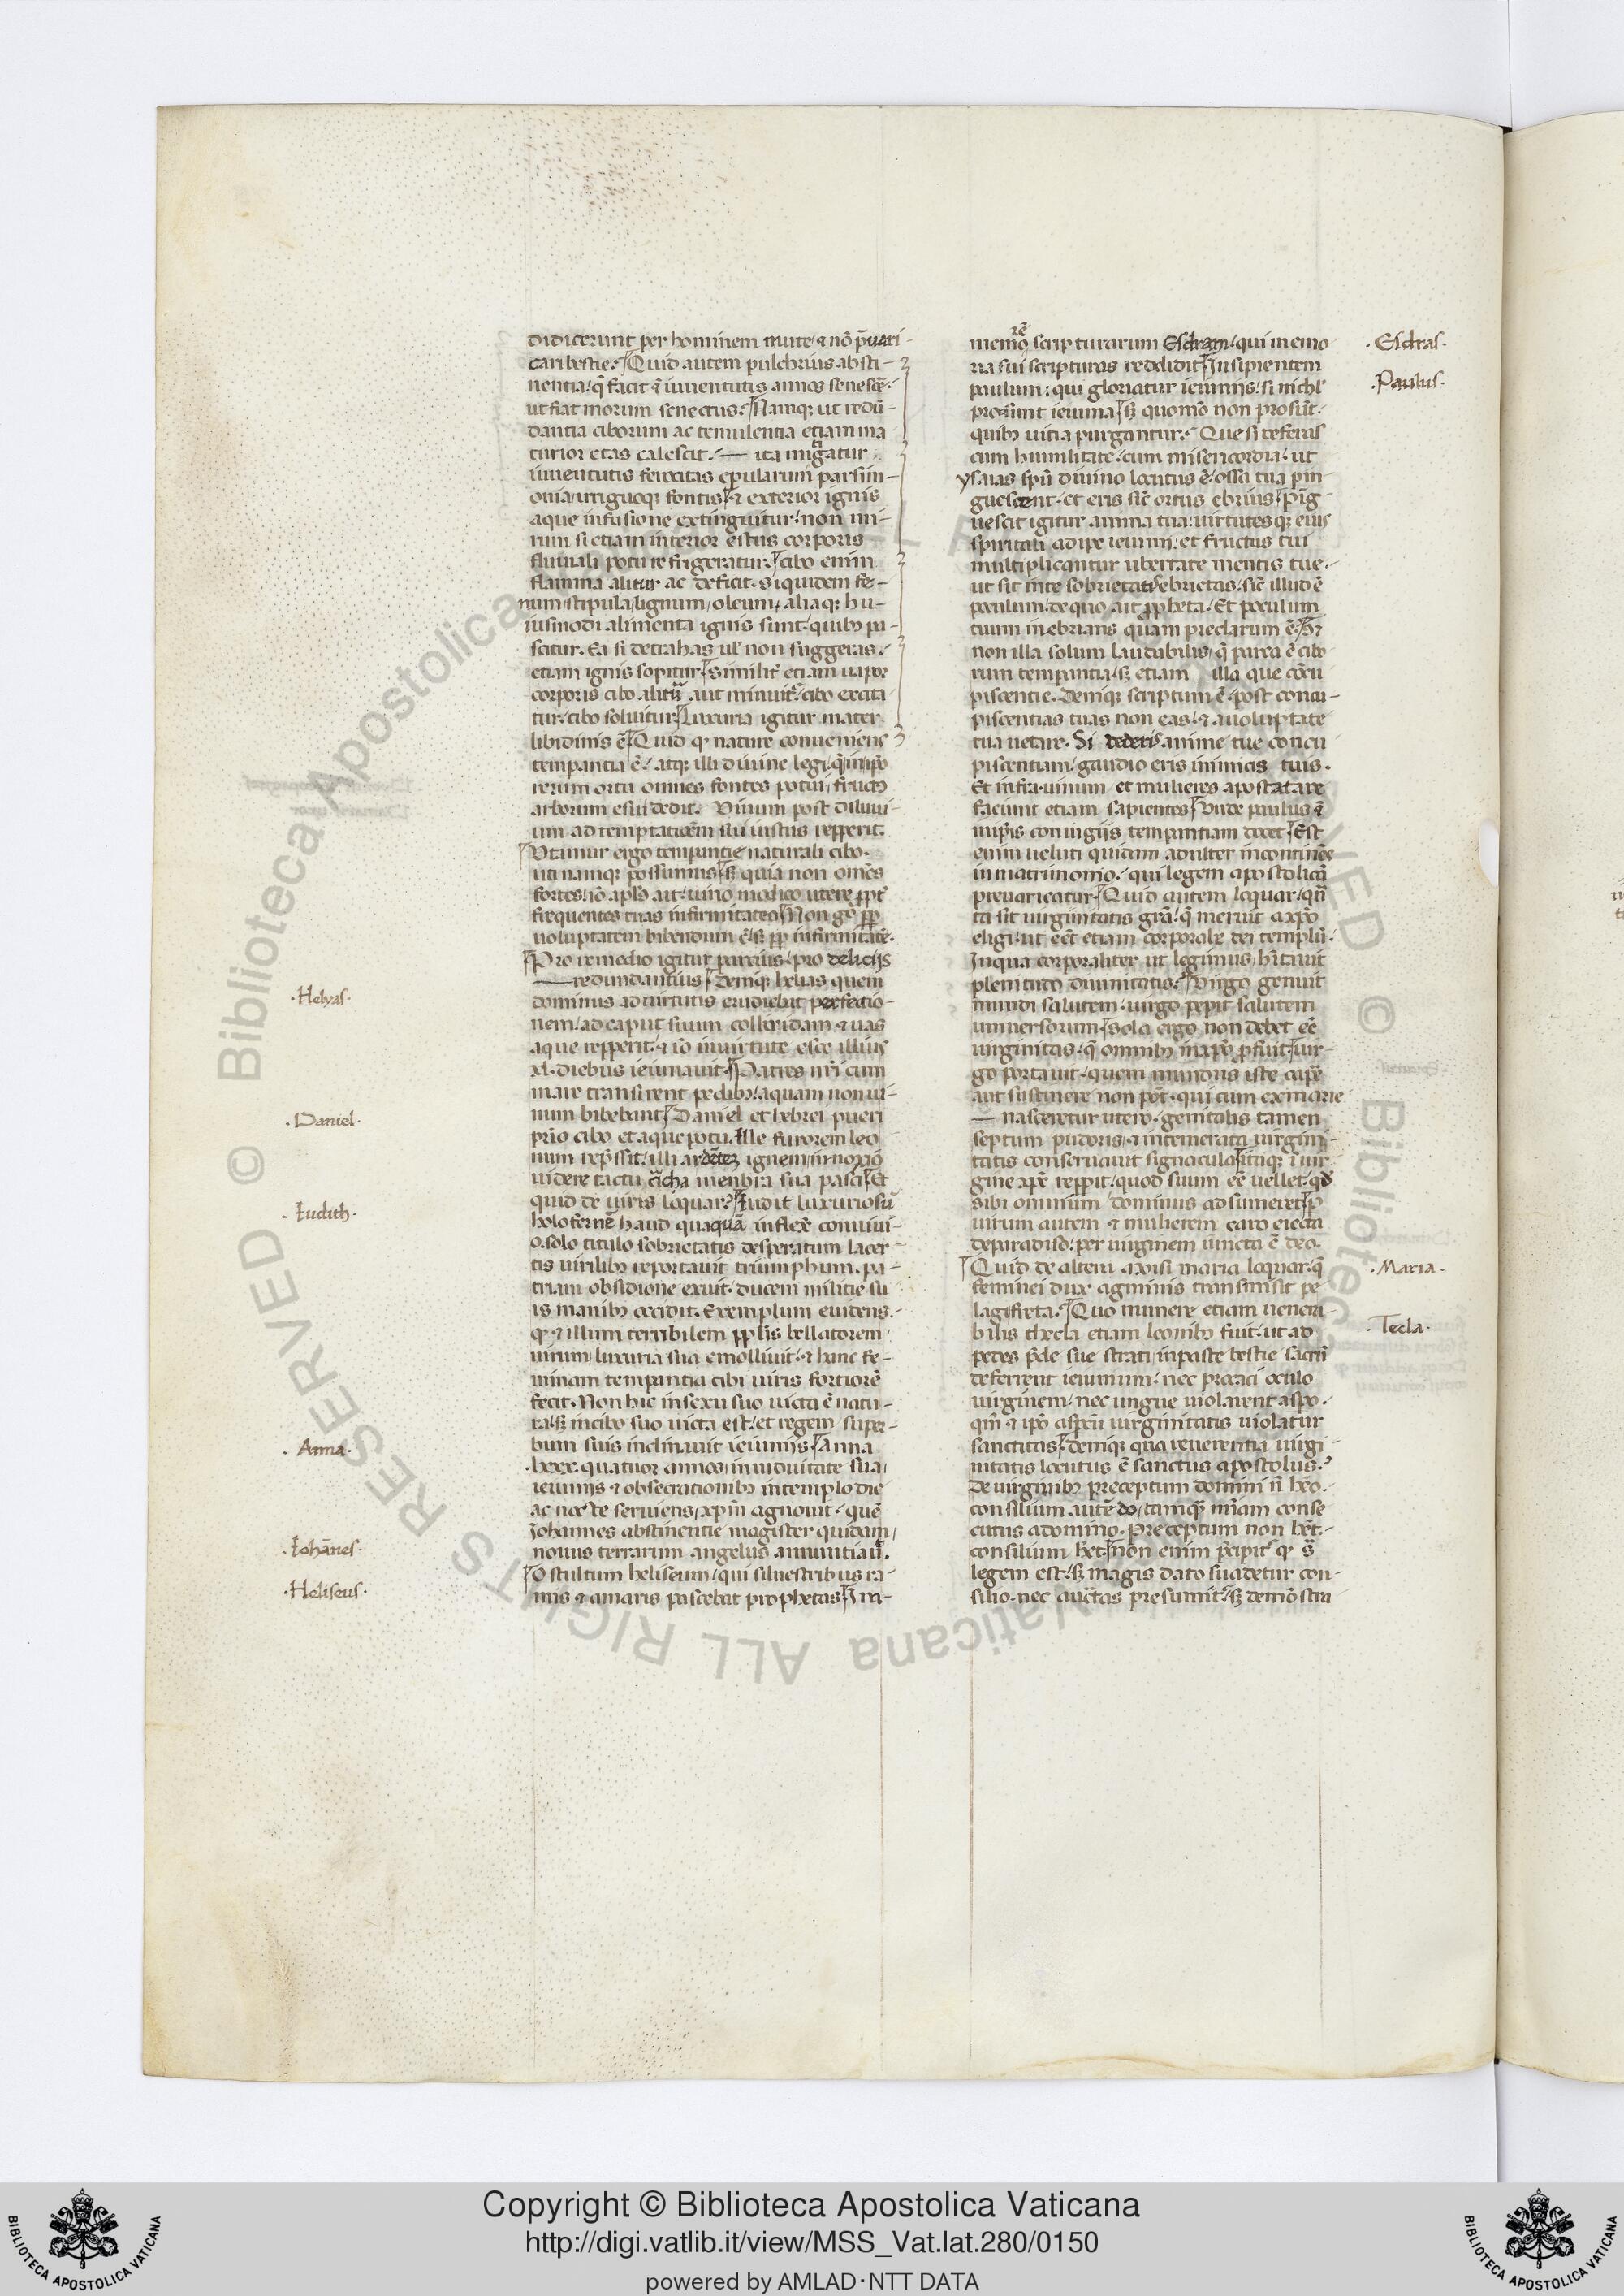 didicerunt per hominem mute ⁊ nō p̄uari-
cari bestie. Quid autem pulchrius absti-
nentia. q̄ facit ⁊ iuuentutis annos senesc̄e.
ut fiat morum senectus. Namq; ut redū-
dantia ciborum ac temulentia etiam ma
turior etas calescit. — ita mitigatur
iuuentutis ferocitas epularum parsim-
onia irriguoq; fontis. ⁊ exterior ignis
aque infusione extinguitur. non mi-
rum si etiam interior estus corporis
fluuiali potu refrigeratur. cibo enim
flamma alitur ac deficit. Siquidem fe-
num, stipula, lignum, oleum, aliaq; hu-
iusmodi alimenta ignis sunt. quib; pa-
scitur. Ea si detrahas ul' non suggeras.
etiam ignis sopitur. Similit̄ etiam uapor
corporis cibo alitur̄ aut minuit̄. cibo excita
tur. cibo soluitur. Luxuria igitur mater
libidinis ē. Quid q; nature conueniens
temp̄antia ē. atq; illi diuine legi. q̄ in ip̄o
rerum ortu omnes fontes potui, fruct;
arborum esui dedit. Vinum post diluui-
um ad temptatiōem sui iustus repperit.
Utamur ergo temp̄antie naturali cibo.
uti namq; possumus. s; quia non om̄es
fortes. iō ap̄ls ait. uino modico utere ꝓpt̄
frequentes tuas infirmitates. Non g̊ ꝓp
uoluptatem bibendum ē. s; ꝓp infirmitatē.
Pro remedio igitur parcius. pro delicijs
— redundantius. Deniq; helias quem
dominus ad uirtutis erudiebat perfectio-
nem. ad caput suum colliridam ⁊ uas
aque repperit. ⁊ iō in uirtute esce illius
xl. diebus ieiunauit. Patres nr̄i cum
mare transirent pedib;. aquam non ui-
num bibebant. Daniel et hebrei pueri
prīo cibo et aque potu. Ille furorem leo
num rep̄ssit. illi
uidere tactu menbra sua pasci. Et
quid de uiris loquar? Iudit luxuriosū
holofernē haud quaquā inflex̄e conuiui-
o. solo titulo sobrietatis desperatum lacer-
tis uirilib; reportauit triumphum. pa-
triam obsidione exuit. ducem militie su
is manib; occidit. Exemplum euidens.
q; ⁊ illum terribilem ꝓplis bellatorem
uirum, luxuria sua emolliuit. ⁊ hanc fe-
minam temp̄antia cibi uiris fortiorē
fecit. Non hic in sexu suo uicta ē natu-
ra. s; in cibo suo uicta est. et regem super-
bum suis inclinauit ieiunijs. Anna
.lxxx. quatuor annos, in uiduitate sua,
ieiunijs ⁊ obsecrationib; in templo die
ac nocte seruiens, xp̄m agnouit. quē
Johannes abstinentie magister quidam,
nouus terrarum angelus annuntiau̅.
O stultum heliseum. qui siluestrib us ra-
mis ⁊ amaris pascebat prophetas. In-
·Helyas·
·Daniel·
·Iudith·
·Anna·
·Iohānes·
·Heliseus·
memorē scripturarum Esdram. qui memo
ria sui scripturas reddidit. Insipientem
paulum. qui gloriatur ieiunijs. si nichl'
prosunt ieiunia. s; quomō non prosūt.
quib; uitia purgantur. Que si deferas
cum humilitate. cum misericordia. ut
ysaias spū diuino locutus ē. ossa tua pin-
guescent. et eris sic̄ ortus ebrius. Pīg-
uescit igitur anima tua. uirtutesq; eius
spiritali adipe ieiunii. et fructus tui
multiplicantur ubertate mentis tue.
ut sit in te sobrietatis ebrietas. sic̄ illud ē
poculum. de quo ait ꝓpheta. Et poculum
tuum inebrians quam preclarum ē. S;
non illa solum laudabilis. q̄ parca ē cibo
rum temp̄antia. s; etiam illa que cōcu
piscentie. Deniq; scriptum ē. post concu-
piscentias tuas non eas. ⁊ a uoluptate
tua uetare. Si dederis anime tue concu
piscentiam. gaudio eris inimicis tuis.
Et infra. uinum et mulieres apostatare
faciunt etiam sapientes. Unde paulus ⁊
in ip̄is coniugijs temp̄antiam docet. Est
enim ueluti quidam adulter incontinēs
in matrimonio. qui legem apostolicā
preuaricatur. Quid autem loquar. quā
ta sit uirginitatis grā. q̄ meruit a xp̄o
eligi. ut eēt etiam corporale dei templū.
In qua corporaliter ut legimus, hītauit
plenitudo diuinitatis. Virgo genuit
mundi salutem. uirgo pep̄it salutem
uniuersorum. Sola ergo non debet eē
uirginitas. q̄ omnib; in xp̄o ꝓfuit. uir-
go portauit. quem mundus iste cap̄e
aut sustinere non pōt. qui cum ex marie
— nasceretur utero. genitalis tamen
septum pudoris. ⁊ intemerata uirgini-
tatis conseruauit signacula. Itaq; ī uir
gine xp̄e repp̄it. quod suum eē uellet. qđ
sibi omnium dominus adsumeret. P
uirum autem ⁊ mulierem caro eiecta
de paradiso. per uirginem iūncta ē deo.
Quid de altera moysi maria loquar. q̄
feminei dux agminis transmisit pe
lagi freta. Quo munere etiam uenera-
bilis thecla etiam leonib; fuit. ut ad
pedes p̄de sue strati inpaste bestie sacrū
deferrent ieiunium. nec procaci oculo
uirginem. nec ungue uiolarent aspo.
qm̄ ⁊ ip̄o asp̄cu uirginitatis uiolatur
sanctitas. Deniq; qua reuerentia uirgi-
nitatis locutus ē sanctus apostolus.
De uirginib; preceptum domini n̄ hēo.
consilium autē do, tamq; mīam conse
cutus a domino. Preceptum non hēt.
consilium hēt. non enim p̄cipit q; s̄
legem est. s; magis dato suadetur con-
silio. nec auctātas presumit. s; demōstra
·Esdras·
·Paulus·
·Maria·
·Tecla·
© Biblioteca Apostolica Vaticana ALL RIGHTS RESERVED
Copyright © Biblioteca Apostolica Vaticana
http://digi.vatlib.it/view/MSS_Vat.lat.280/0150
powered by AMLAD·NTT DATA
BIBLIOTECA APOSTOLICA VATICANA
BIBLIOTECA APOSTOLICA VATICANA